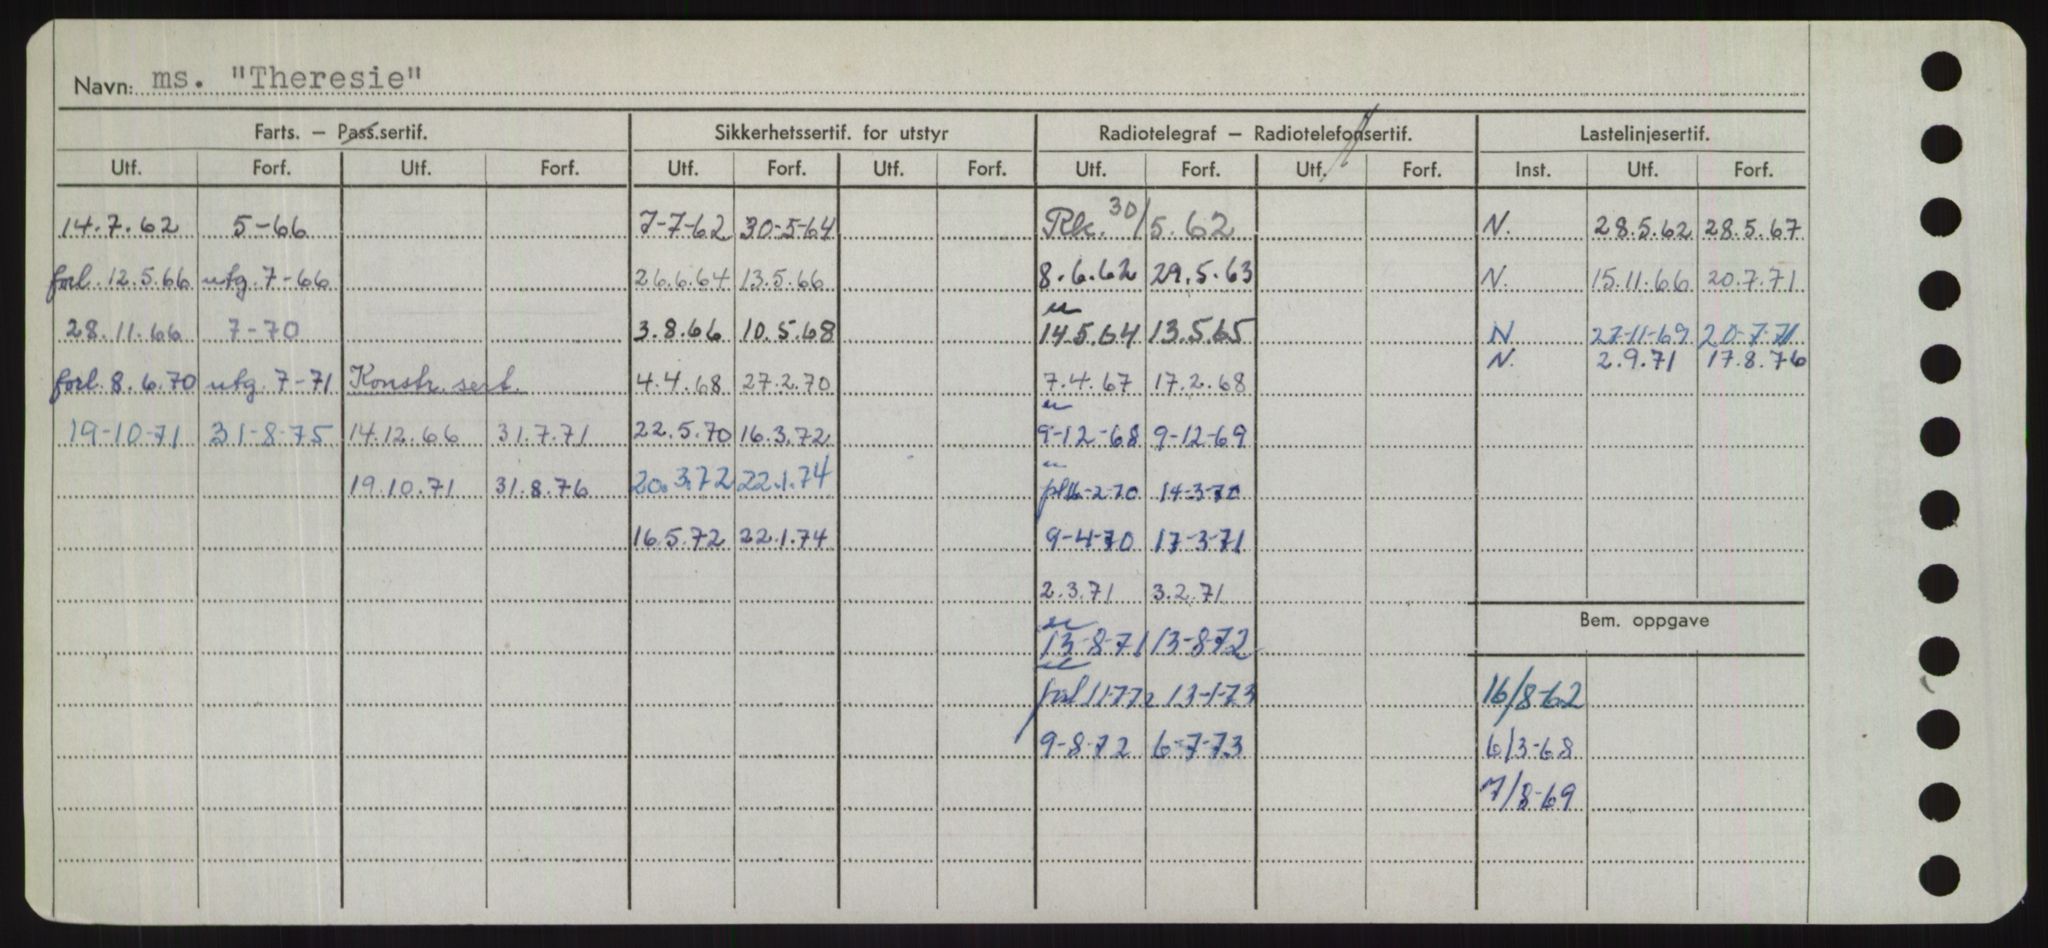 Navn: ms. "Theresie"
Farts. – Pass.sertif. Sikkerhetssertif. for utstyr Radiotelegraf – Radiotelefonsertif. Lastelinjesertif.
Utf. Forf. Utf. Forf. Utf. Forf. Utf. Forf. Utf. Forf. Utf. Forf. Inst. Utf. Forf.
14.7.62 5-66 7-7-62 30-5-64 30/5.62 N. 28.5.62 28.5.67
forl. 12.5.66 utg. 7-66 26.6.64 13.5.66 8.6.62 29.5.63 N. 15.11.66 20.7.71
28.11.66 7-70 3.8.66 10.5.68 14.5.64 13.5.65 N 27-11-69 20-7-71
N. 2.9.71 17.8.76
forl. 8.6.70 utg. 7-71 Konstr. sert. 4.4.68 27.2.70 7.4.67 17.2.68
19-10-71 31-8-75 14.12.66 31.7.71 22.5.70 16.3.72 9-12-68 9-12-69
19.10.71 31.8.76 20.3.72 22.1.74 16-2-70 14-3-70
16.5.72 22.1.74 9-4-70 17-3-71
2.3.71 3.2.71
Bem. oppgave
13-8-71 13-8-72
forl 11-7-72 13-1-73 16/8-62
9-8-72 6-7-73 6/3-68
7/8-69